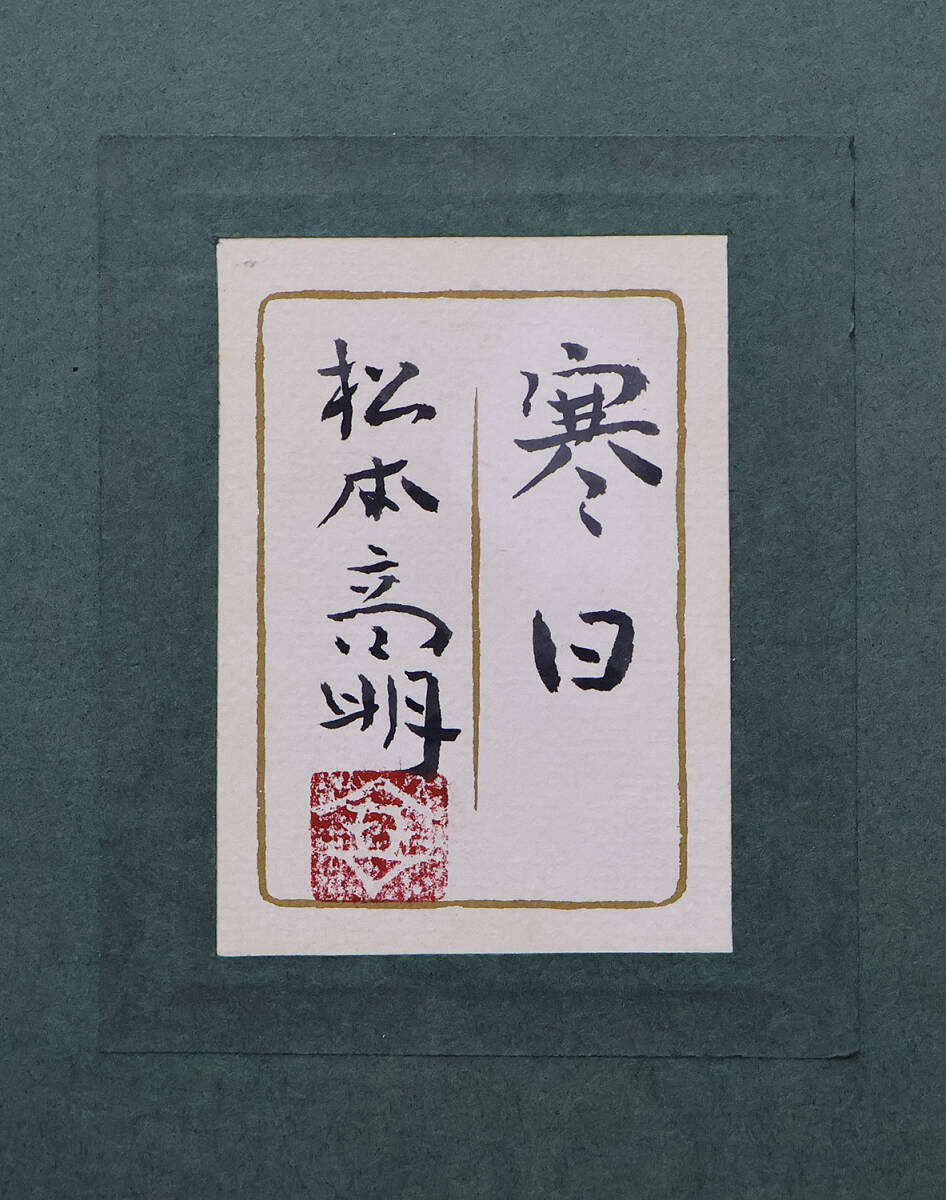 寒日
松本高明